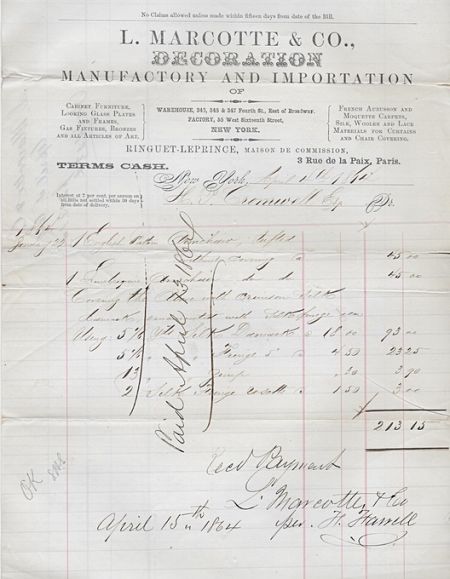 No Claims allowed unless made within fifteen days from date of the Bill.
L. MARCOTTE & CO.,
DECORATION
MANUFACTORY AND IMPORTATION
OF
CABINET FURNITURE,
LOOKING GLASS PLATES
AND FRAMES,
GAS FIXTURES, BRONZES
AND ALL ARTICLES OF ART.
WAREHOUSE, 343, 345 & 347 Fourth St., East of Broadway.
FACTORY, 55 West Sixteenth Street,
NEW YORK.
FRENCH AUBUSSON AND
MOQUETTE CARPETS,
SILK, WOOLEN AND LACE
MATERIALS FOR CURTAINS
AND CHAIR COVERING.
RINGUET-LEPRINCE, MAISON DE COMMISSION,
3 Rue de la Paix, Paris.
TERMS CASH.
New York, April 186
Interest at 7 per cent. per annum on
all Bills not settled within 30 days
from date of delivery.
Cromwell Esq Dr.
January 22 1 English Armchair, tufted
without Covering 45 00
1 Armchair do do 45 00
Covering the with crimson Silk
with
Using 5 1/6 Yds Silk Damask @ 18 00 93 00
5 1/6 " " Fringe 5" @ 4 50 23 25
13 " " Gimp " 30 3 90
2 Silk 1 50 3 00
213 15
Paid April 23 1864
Recd Payment
L. Marcotte & Co
per. H. Farrell
April 15th 1864
OK